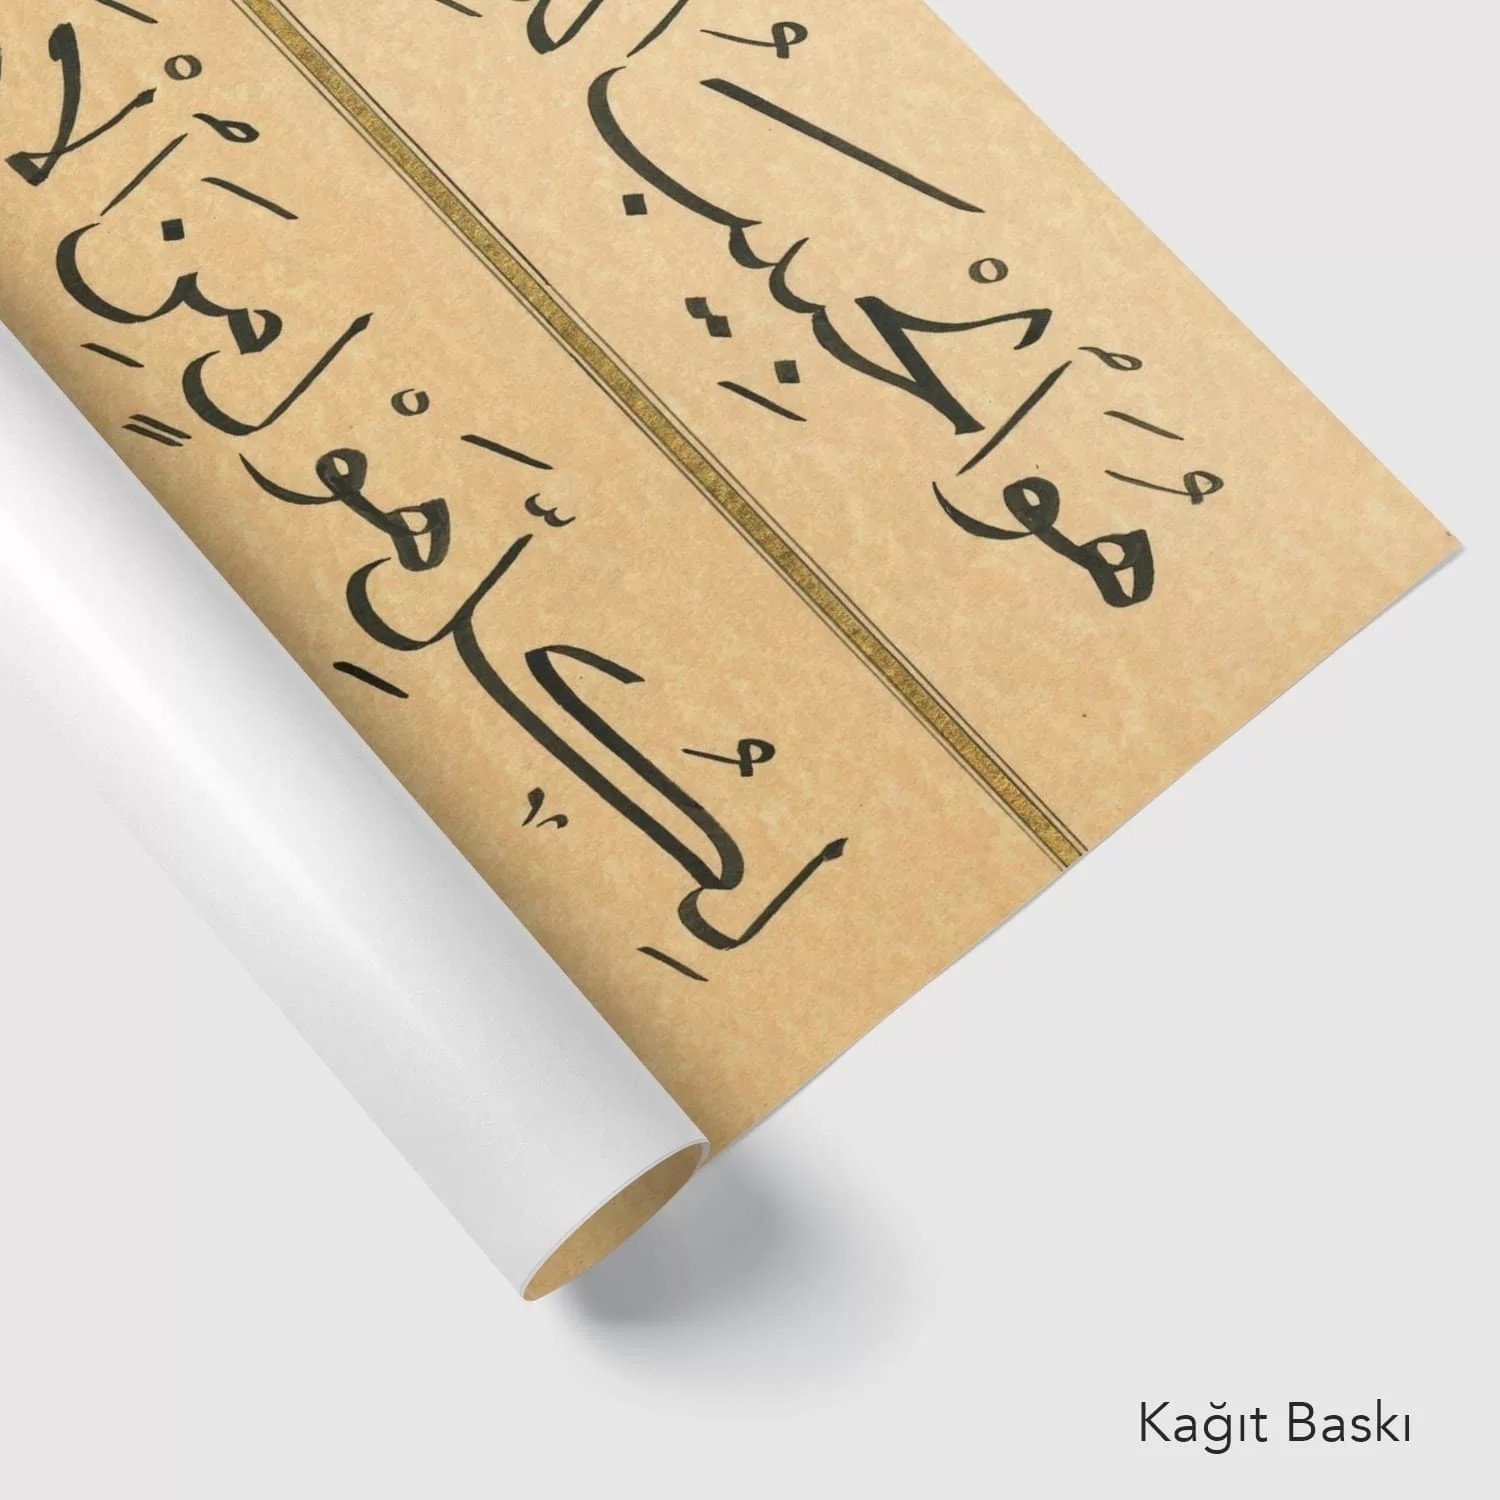 هُوَ الْحَبِيبُ
لِكُلِّ هَوْلٍ مِنَ
Kağıt Baskı